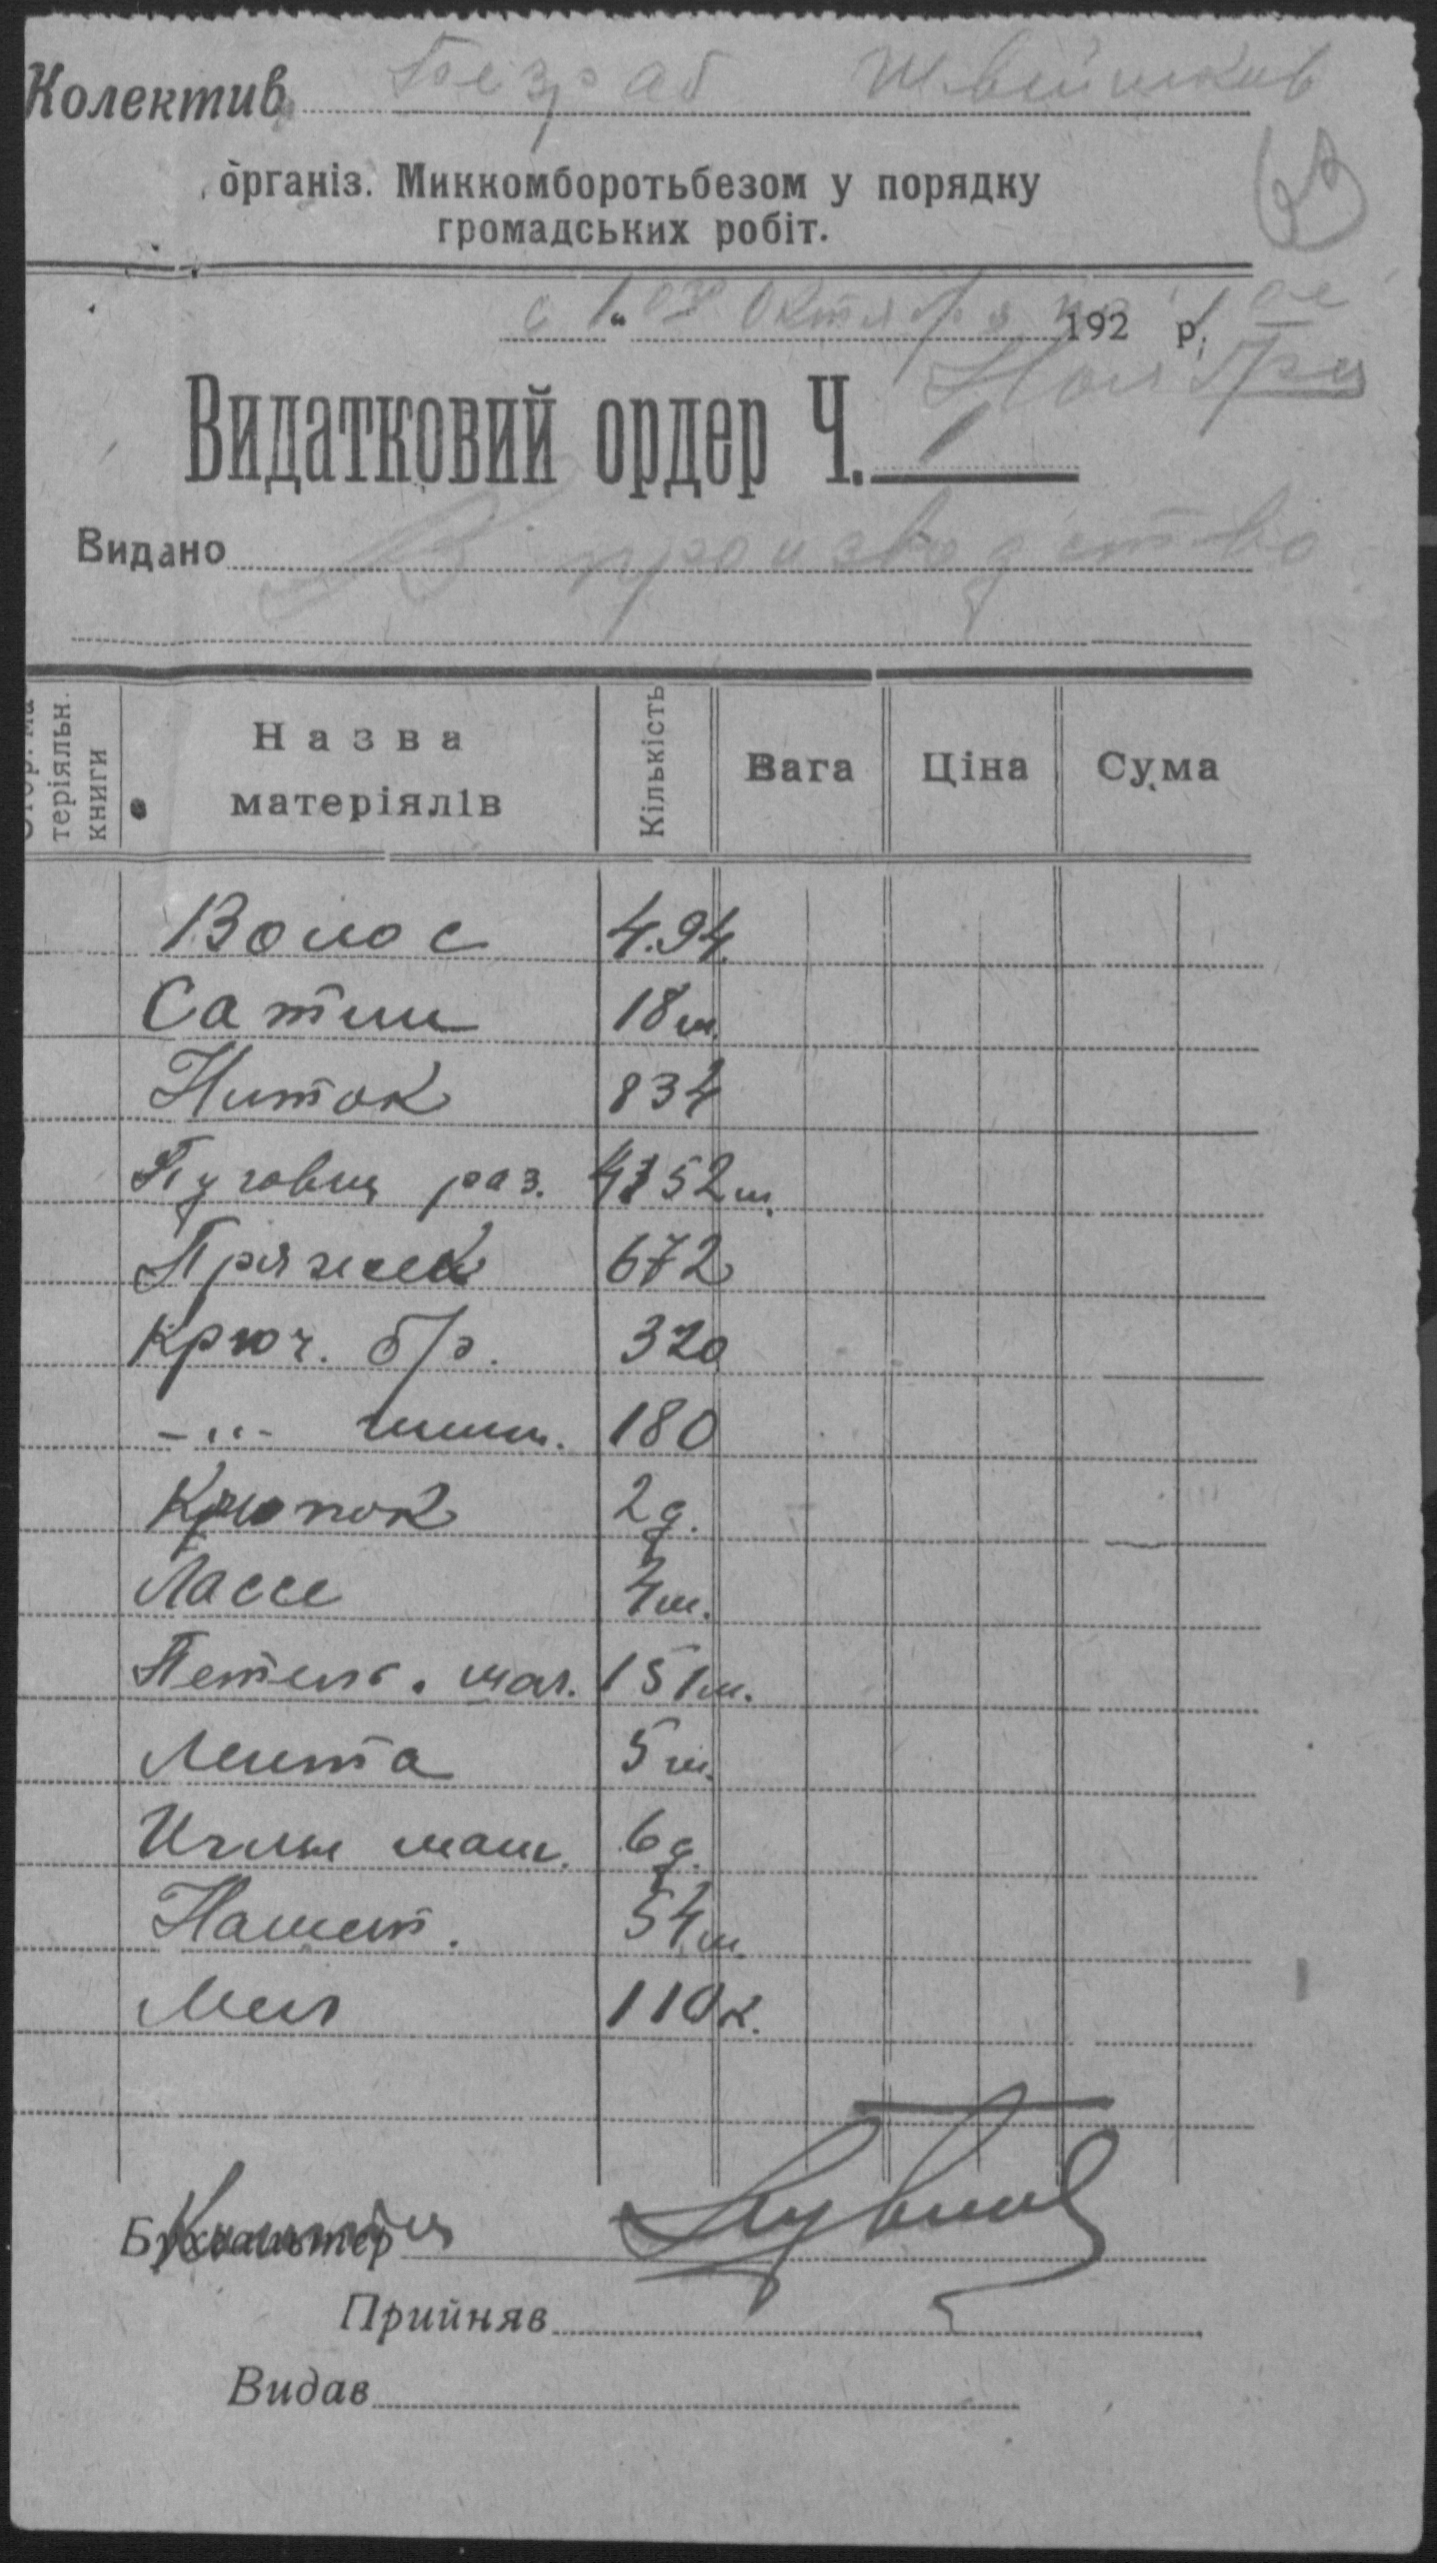 Колектив Безраб Швейников
організ. Миккомборотьбезом у порядку
громадських робіт.
с 1 " ого Октября по 192 р. 1 ое
Ноября
Видатковий ордер Ч. 1
Видано В производство
теріяльн. книги
Назва матеріялів Кількість Вага Ціна Сума
Волос 4.94
Сатин 18 м.
Ниток 834
Пуговиц раз. 4352 ш.
Пряжек 672
Крюч. б/р. 320
-"- шин. 180
Кнопок 2 д.
Лассе 4 м.
Петель. мал. 151 м.
Лента 5 м.
Иглы маш. 6 д.
Нашит. 54 м.
Мел 110 к.
Бухгальтер
Прийняв
Видав